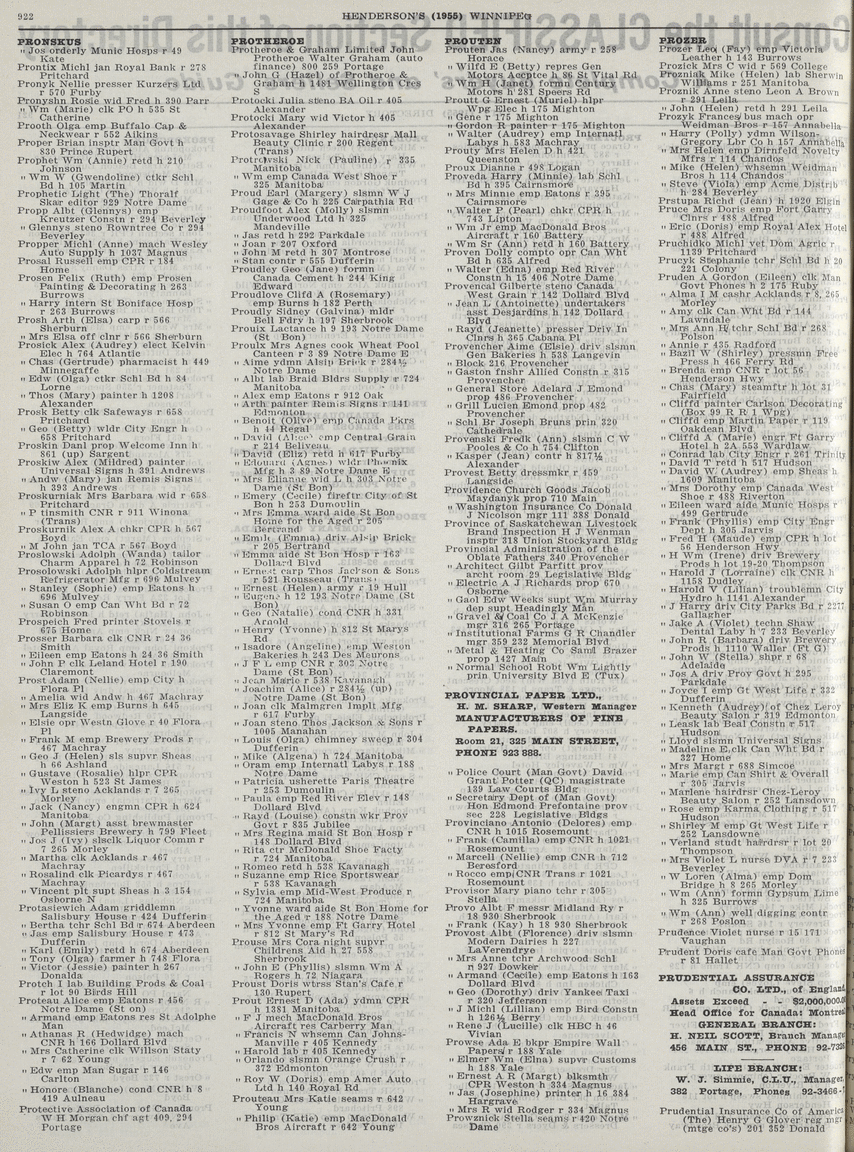 922
HENDERSON'S (1955) WINNIPEG
PRONSKUS
" Jos orderly Munic Hosps r 49
Kate
Prontix Michl jan Royal Bank r 278
Pritchard
Pronyk Nellie presser Kurzers Ltd
r 570 Furby
Pronyshn Rosie wid Fred h 390 Parr
" Wm (Marie) clk PO h 536 St
Catherine
Prooth Olga emp Buffalo Cap &
Neckwear r 552 Alkins
Proper Brian insptr Man Govt h
830 Prince Rupert
Prophet Wm (Annie) retd h 210
Johnson
" Wm W (Gwendoline) ctkr Schl
Bd h 105 Martin
Prophetic Light (The) Thoralf
Skar editor 929 Notre Dame
Propp Albt (Glennys) emp
Kreutzer Constn r 294 Beverley
" Glennys steno Rowntree Co r 294
Beverley
Propper Michl (Anne) mach Wesley
Auto Supply h 1037 Magnus
Prosal Russell emp CPR r 184
Home
Prosen Felix (Ruth) emp Prosen
Painting & Decorating h 263
Burrows
" Harry intern St Boniface Hosp
r 263 Burrows
Prosh Arth (Elsa) carp r 566
Sherburn
" Mrs Elsa off clnr r 566 Sherburn
Prosick Alex (Audrey) elect Kelvin
Elec h 764 Atlantic
" Chas (Gertrude) pharmacist h 449
Minnegaffe
" Edw (Olga) ctkr Schl Bd h 84
Lorne
" Thos (Mary) painter h 1208
Alexander
Prosk Betty clk Safeways r 658
Pritchard
" Geo (Betty) wldr City Engr h
658 Pritchard
Proskin Danl prop Welcome Inn h
861 (up) Sargent
Proskiw Alex (Mildred) painter
Universal Signs h 391 Andrews
" Andw (Mary) jan Remis Signs
h 393 Andrews
Proskurniak Mrs Barbara wid r 658
Pritchard
" P tinsmith CNR r 911 Winona
(Trans)
Proskurnik Alex A chkr CPR h 567
Boyd
" M John jan TCA r 567 Boyd
Proslowski Adolph (Wanda) tailor
Charm Apparel h 72 Robinson
Prosolowski Adolph hlpr Coldstream
Refrigerator Mfg r 696 Mulvey
" Stanley (Sophie) emp Eatons h
696 Mulvey
" Susan O emp Can Wht Bd r 72
Robinson
Prospeich Fred printer Stovels r
675 Home
Prosser Barbara clk CNR r 24 36
Smith
" Eileen emp Eatons h 24 36 Smith
" John P clk Leland Hotel r 190
Claremont
Prost Adam (Nellie) emp City h
Flora Pl
" Amelia wid Andw h 467 Machray
" Mrs Eliz K emp Burns h 645
Langside
" Elsie opr Westn Glove r 40 Flora
Pl
" Frank M emp Brewery Prods r
467 Machray
" Geo J (Helen) sls supvr Sheas
h 66 Ashland
" Gustave (Rosalie) hlpr CPR
Weston h 523 St James
" Ivy L steno Acklands r 7 265
Morley
" Jack (Nancy) engmn CPR h 624
Manitoba
" John (Margt) asst brewmaster
Pellissiers Brewery h 799 Fleet
" Jos J (Ivy) slsclk Liquor Comm r
7 265 Morley
" Martha clk Acklands r 467
Machray
" Rosalind clk Picardys r 467
Machray
" Vincent plt supt Sheas h 3 154
Osborne N
Protasiewich Adam griddlemn
Salisbury House r 424 Dufferin
" Bertha tchr Schl Bd r 674 Aberdeen
" Jas emp Salisbury House r 473
Dufferin
" Karl (Emily) retd h 674 Aberdeen
" Tony (Olga) farmer h 748 Flora
" Victor (Jessie) painter h 267
Donalda
Protch I lab Building Prods & Coal
r lot 90 Birds Hill
Proteau Alice emp Eatons r 456
Notre Dame (St on)
" Armand emp Eatons res St Adolphe
Man
" Athanas R (Hedwidge) mach
CNR h 166 Dollard Blvd
" Mrs Catherine clk Willson Staty
r 7 62 Young
" Edw emp Man Sugar r 146
Carlton
" Honore (Blanche) cond CNR h 8
419 Aulneau
Protective Association of Canada
W H Morgan chf agt 409, 294
Portage
PROTHEROE
Protheroe & Graham Limited John
Protheroe Walter Graham (auto
finance) 800 259 Portage
" John G (Hazel) of Protheroe &
Graham h 1481 Wellington Cres
S
Protocki Julia steno BA Oil r 405
Alexander
Protocki Mary wid Victor h 405
Alexander
Protosavage Shirley hairdresr Mall
Beauty Clinic r 200 Regent
(Trans)
Protrovski Nick (Pauline) r 335
Manitoba
" Wm emp Canada West Shoe r
325 Manitoba
Proud Earl (Margery) slsmn W J
Gage & Co h 225 Carpathia Rd
Proudfoot Alex (Molly) slsmn
Underwood Ltd h 325
Mandeville
" Jas retd h 292 Parkdale
" Joan r 207 Oxford
" John M retd h 307 Montrose
" Stan contr r 555 Dufferin
Proudley Geo (Jane) formn
Canada Cement h 244 King
Edward
Proudlove Clifd A (Rosemary)
emp Burns h 132 Perth
Proudly Sidney (Galvina) mldr
Bell Fdry h 197 Sherbrook
Prouix Lactance h 9 193 Notre Dame
(St Bon)
Proulx Mrs Agnes cook Wheat Pool
Canteen r 3 89 Notre Dame E
" Aime ydmn Alsip Brick r 284½
Notre Dame
" Albt lab Braid Bldrs Supply r 724
Manitoba
" Alex emp Eatons r 912 Oak
" Arth painter Remis Signs r 141
Edmonton
" Benoit (Olive) emp Canada Pkrs
h 44 Regal
" David (Alice) emp Central Grain
r 214 Beliveau
" David (Eliz) retd h 617 Furby
" Edouard (Agnes) wldr Phoenix
Mfg h 3 89 Notre Dame E
" Mrs Elianne wid L h 303 Notre
Dame (St Bon)
" Emery (Cecile) fireftr City of St
Bon h 253 Dumoulin
" Mrs Emma ward aide St Bon
Home for the Aged r 205
Bertrand
" Emile (Emma) driv Alsip Brick
r 205 Bertrand
" Emma aide St Bon Hosp r 163
Dollard Blvd
" Ernest carp Thos Jackson & Sons
r 521 Rousseau (Trans)
" Ernest (Helen) army r 19 Hull
" Eugene h 12 193 Notre Dame (St
Bon)
" Geo (Natalie) cond CNR h 331
Arnold
" Henry (Yvonne) h 812 St Marys
Rd
" Isadore (Angeline) emp Weston
Bakeries h 243 Des Meurons
" J F L emp CNR r 303 Notre
Dame (St Bon)
" Jean Marie r 538 Kavanagh
" Joachim (Alice) r 284½ (up)
Notre Dame (St Bon)
" Joan clk Malmgren Implt Mfg
r 617 Furby
" Joan steno Thos Jackson & Sons r
1005 Manahan
" Louis (Olga) chimney sweep r 304
Dufferin
" Mike (Algena) h 724 Manitoba
" Oram emp Internatl Labys r 188
Notre Dame
" Patricia usherette Paris Theatre
r 253 Dumoulin
" Paula emp Red River Elev r 148
Dollard Blvd
" Rayd (Louise) constn wkr Prov
Govt r 835 Jubilee
" Mrs Regina maid St Bon Hosp r
148 Dollard Blvd
" Rita ctr McDonald Shoe Facty
r 724 Manitoba
" Romeo retd h 538 Kavanagh
" Suzanne emp Rice Sportswear
r 538 Kavanagh
" Sylvia emp Mid-West Produce r
724 Manitoba
" Yvonne ward aide St Bon Home for
the Aged r 188 Notre Dame
" Mrs Yvonne emp Ft Garry Hotel
r 812 St Mary's Rd
Prouse Mrs Cora night supvr
Childrens Aid h 27 558
Sherbrook
" John E (Phyllis) slsmn Wm A
Rogers h 72 Niagara
Proust Doris wtrss Stan's Cafe r
130 Rupert
Prout Ernest D (Ada) ydmn CPR
h 1381 Manitoba
" F J mech MacDonald Bros
Aircraft res Carberry Man
" Francis N whsemn Can Johns-
Manville r 405 Kennedy
" Harold lab r 405 Kennedy
" Orlando slsmn Orange Crush r
372 Edmonton
" Roy W (Doris) emp Amer Auto
Ltd h 140 Royal Rd
Prouteau Mrs Katie seams r 642
Young
" Philip (Katie) emp MacDonald
Bros Aircraft r 642 Young
PROUTEN
Prouten Jas (Nancy) army r 258
Horace
" Wilfd E (Betty) repres Gen
Motors Accptce h 86 St Vital Rd
" Wm H (Janet) formn Century
Motors h 281 Speers Rd
Proutt G Ernest (Muriel) hlpr
Wpg Elec h 175 Mighton
" Gene r 175 Mighton
" Gordon R painter r 175 Mighton
" Walter (Audrey) emp Internatl
Labys h 583 Machray
Prouty Mrs Helen D h 421
Queenston
Proux Dianne r 498 Logan
Proveda Harry (Minnie) lab Schl
Bd h 395 Cairnsmore
" Mrs Minnie emp Eatons r 395
Cairnsmore
" Walter P (Pearl) chkr CPR h
743 Lipton
" Wm Jr emp MacDonald Bros
Aircraft r 160 Battery
" Wm Sr (Ann) retd h 160 Battery
Proven Dolly compto opr Can Wht
Bd h 635 Alfred
" Walter (Edna) emp Red River
Constn h 15 406 Notre Dame
Provencal Gilberte steno Canada
West Grain r 142 Dollard Blvd
" Jean L (Antoinette) undertakers
asst Desjardins h 142 Dollard
Blvd
" Rayd (Jeanette) presser Driv In
Clnrs h 365 Cabana Pl
Provencher Aime (Elsie) driv slsmn
Gen Bakeries h 538 Langevin
" Block 216 Provencher
" Gaston fnshr Allied Constn r 315
Provencher
" General Store Adelard J Emond
prop 486 Provencher
" Grill Lucien Emond prop 482
Provencher
" Schl Br Joseph Bruns prin 320
Cathedrale
Provenski Fredk (Ann) slsmn C W
Pooles & Co h 754 Clifton
" Kasper (Jean) contr h 817½
Alexander
Provest Betty dressmkr r 459
Langside
Providence Church Goods Jacob
Maydanyk prop 710 Main
" Washington Insurance Co Donald
J Nicolson mgr 111 388 Donald
Province of Saskatchewan Livestock
Brand Inspection H J Wenman
insptr 318 Union Stockyard Bldg
Provincial Administration of the
Oblate Fathers 340 Provencher
" Architect Gilbt Parfitt prov
archt room 29 Legislative Bldg
" Electric A J Richards prop 670
Osborne
" Gaol Edw Weeks supt Wm Murray
dep supt Headingly Man
" Gravel & Coal Co J A McKenzie
mgr 316 265 Portage
" Institutional Farms G R Chandler
mgr 359 232 Memorial Blvd
" Metal & Heating Co Saml Brazer
prop 1427 Main
" Normal School Robt Wm Lightly
prin University Blvd E (Tux)
PROVINCIAL PAPER LTD.,
H. M. SHARP, Western Manager
MANUFACTURERS OF FINE
PAPERS.
Room 21, 325 MAIN STREET,
PHONE 923 888.
" Police Court (Man Govt) David
Grant Potter (QC) magistrate
139 Law Courts Bldg
" Secretary Dept of (Man Govt)
Hon Edmond Prefontaine prov
sec 228 Legislative Bldgs
Provinciano Antonio (Delores) emp
CNR h 1015 Rosemount
" Frank (Camilla) emp CNR h 1021
Rosemount
" Marcell (Nellie) emp CNR h 712
Beresford
" Rocco emp CNR Trans r 1021
Rosemount
Provisor Mary piano tchr r 305
Stella
Provo Albt F messr Midland Ry r
18 930 Sherbrook
" Frank (Kay) h 18 930 Sherbrook
Provost Albt (Florence) driv slsmn
Modern Dairies h 227
LaVerendrye
" Mrs Anne tchr Archwood Schl
r 927 Dowker
" Armand (Cecile) emp Eatons h 163
Dollard Blvd
" Geo (Dorothy) driv Yankee Taxi
r 320 Jefferson
" J Michl (Lillian) emp Bird Constn
h 126½ Berry
" Rene J (Lucille) clk HBC h 46
Vivian
Prowse Ada E bkpr Empire Wall
Papers r 188 Yale
" Elmer Wm (Elna) supvr Customs
h 188 Yale
" Ernest A R (Margt) blksmth
CPR Weston h 334 Magnus
" Jas (Josephine) printer h 16 384
Hargrave
" Mrs R wid Rodger r 334 Magnus
Prowznick Stella seams r 420 Notre
Dame
PROZER
Prozer Leo (Fay) emp Victoria
Leather h 143 Burrows
Prozick Mrs C wid r 569 College
Prozniak Mike (Helen) lab Sherwin
Williams r 251 Manitoba
Proznik Anne steno Leon A Brown
r 291 Leila
" John (Helen) retd h 291 Leila
Prozyk Frances bus mach opr
Weidman Bros r 157 Annabella
" Harry (Polly) ydmn Wilson-
Gregory Lbr Co h 157 Annabella
" Mrs Helen emp Dirnfeld Novelty
Mfrs r 114 Chandos
" Mike (Helen) whsemn Weidman
Bros h 114 Chandos
" Steve (Viola) emp Acme Distrib
h 284 Beverley
Prstupa Richd (Jean) h 1920 Elgin
Pruce Mrs Doris emp Fort Garry
Clnrs r 488 Alfred
" Eric (Doris) emp Royal Alex Hotel
r 488 Alfred
Pruchidko Michl vet Dom Agric r
1139 Pritchard
Prucyk Stephanie tchr Schl Bd h 20
221 Colony
Pruden A Gordon (Eileen) clk Man
Govt Phones h 2 175 Ruby
" Alma I M cashr Acklands r 8, 265
Morley
" Amy clk Can Wht Bd r 144
Lawndale
" Mrs Ann E tchr Schl Bd r 268
Polson
" Annie r 435 Radford
" Bazil W (Shirley) pressmn Free
Press h 466 Ferry Rd
" Brenda emp CNR r lot 56
Henderson Hwy
" Chas (Mary) steamftr h lot 31
Fairfield
" Cliffd painter Carlson Decorating
(Box 99 R R 1 Wpg)
" Cliffd emp Martin Paper r 119
Oakdean Blvd
" Cliffd A (Marie) engr Ft Garry
Hotel h 2A 553 Wardlaw
" Conrad lab City Engr r 261 Trinity
" David T retd h 517 Hudson
" David W (Audrey) emp Sheas h
1609 Manitoba
" Mrs Dorothy emp Canada West
Shoe r 488 Riverton
" Eileen ward aide Munic Hosps r
499 Gertrude
" Frank (Phyllis) emp City Engr
Dept h 305 Jarvis
" Fred H (Maude) emp CPR h lot
56 Henderson Hwy
" H Wm (Irene) driv Brewery
Prods h lot 19-20 Thompson
" Harold J (Lorraine) clk CNR h
1158 Dudley
" Harold V (Lillian) troublemn City
Hydro h 1141 Alexander
" J Harry driv City Parks Bd r 2277
Gallagher
" Jake A (Violet) techn Shaw
Dental Laby h 7 233 Beverley
" John R (Barbara) driv Brewery
Prods h 1110 Waller (Ft G)
" John W (Stella) shpr r 68
Adelaide
" Jos A driv Prov Govt h 295
Parkdale
" Joyce I emp Gt West Life r 332
Dufferin
" Kenneth (Audrey) of Chez Leroy
Beauty Salon r 319 Edmonton
" Leask lab Beal Constn r 517
Hudson
" Lloyd slsmn Universal Signs
" Madeline E clk Can Wht Bd r
327 Home
" Mrs Margt r 688 Simcoe
" Marie emp Can Shirt & Overall
r 305 Jarvis
" Marlene hairdrsr Chez-Leroy
Beauty Salon r 252 Lansdown
" Rose emp Karma Clothing r 517
Hudson
" Shirley M emp Gt West Life r
252 Lansdowne
" Verland studt hairdrsr r lot 20
Thompson
" Mrs Violet L nurse DVA r 7 233
Beverley
" W Loren (Alma) emp Dom
Bridge h 8 265 Morley
" Wm (Ann) formn Gypsum Lime
h 325 Burrows
" Wm (Ann) well digging contr
r 268 Poslon
Prudence Violet nurse r 15 171
Vaughan
Prudent Doris cafe Man Govt Phones
r 81 Hallet
PRUDENTIAL ASSURANCE
CO. LTD., of England
Assets Exceed - - $2,000,000,0
Head Office for Canada: Montre
GENERAL BRANCH:
H. NEIL SCOTT, Branch Manag
456 MAIN ST., PHONE 92-73
LIFE BRANCH:
W. J. Simmie, C.L.U., Manager,
382 Portage, Phones 92-3466-
Prudential Insurance Co of America
(The) Henry G Glover reg mgr
(mtge co's) 201 352 Donald